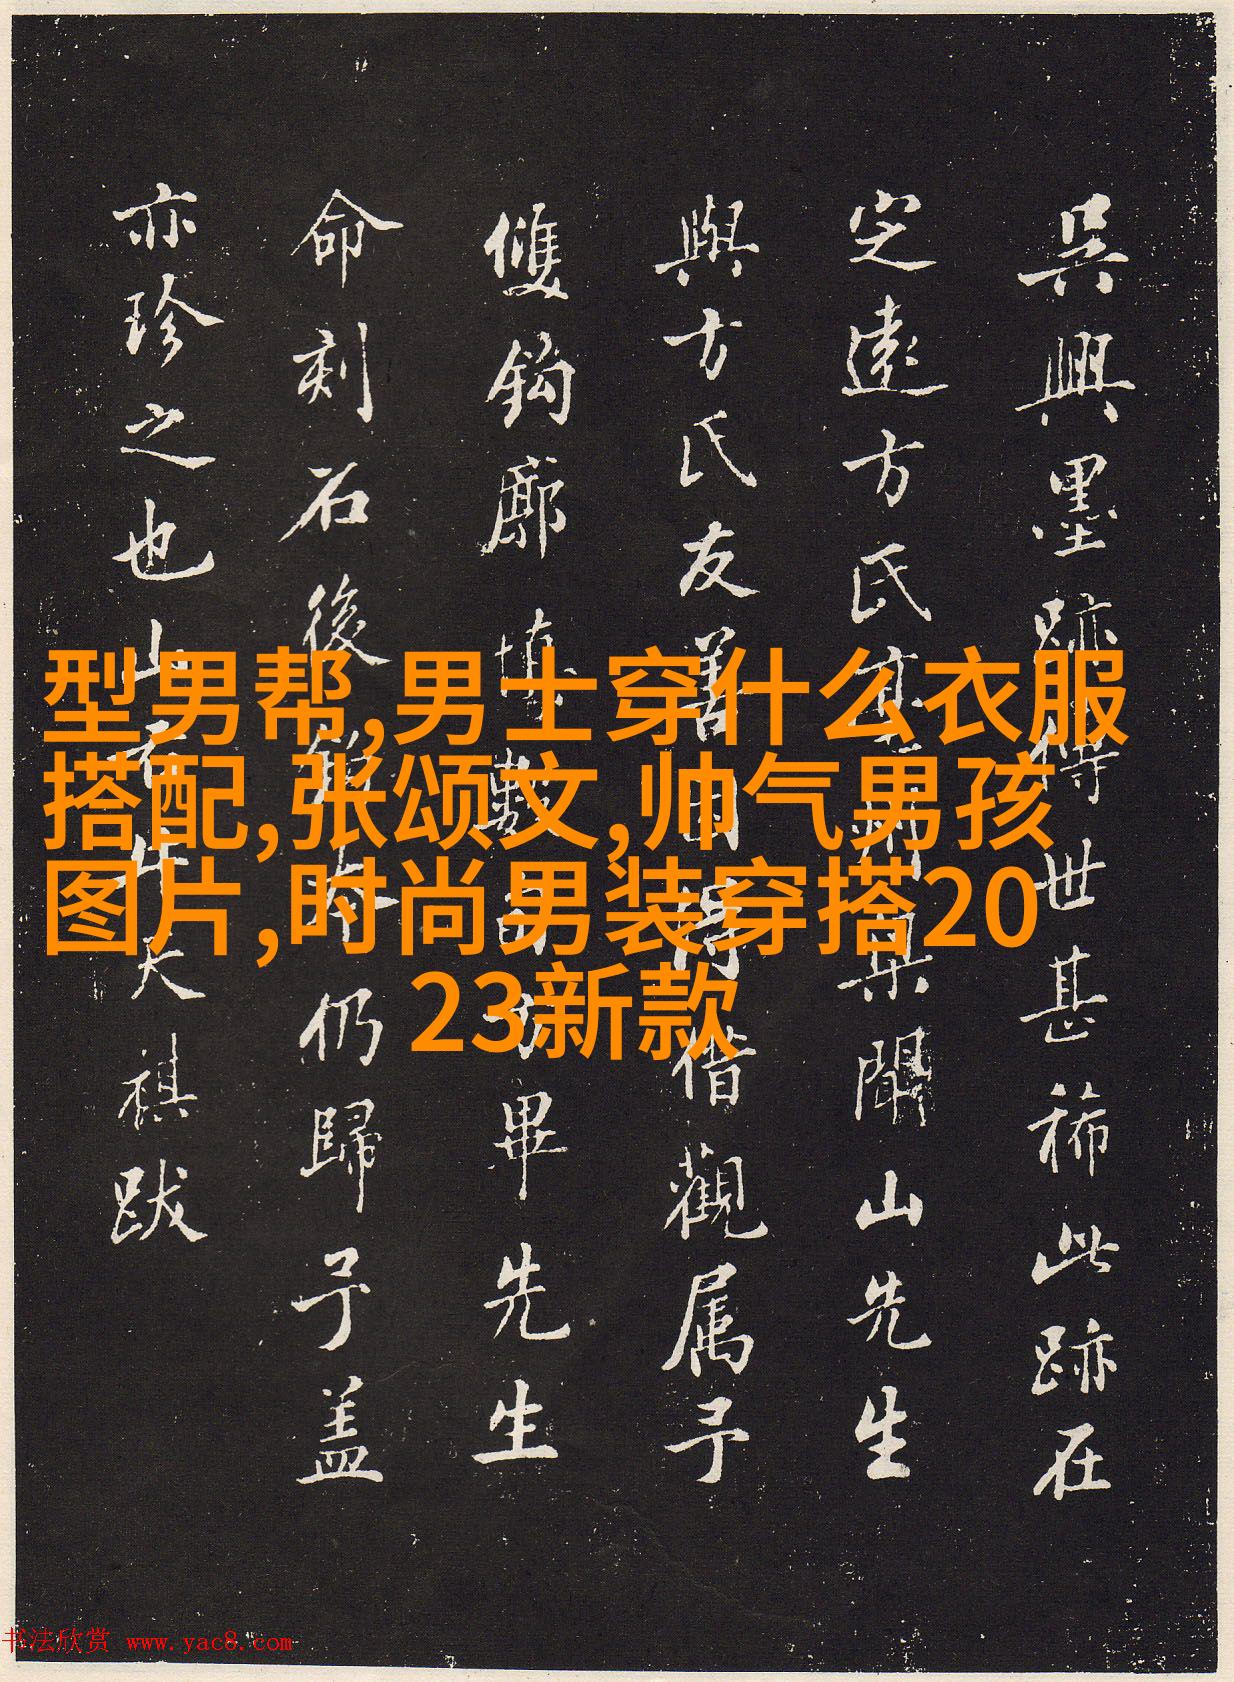 吳興墨跡傳世甚稀此跡在
定遠方氏聞山先生
與方氏友善因得借觀属予
雙鈎廓填數日功畢先生
命刻石後仍歸予盖
亦珍之也山右牛大祺跋
型男帮,男士穿什么衣服
搭配,张颂文,帅气男孩
图片,时尚男装穿搭20
23新款
书法欣赏 www.yac8.com